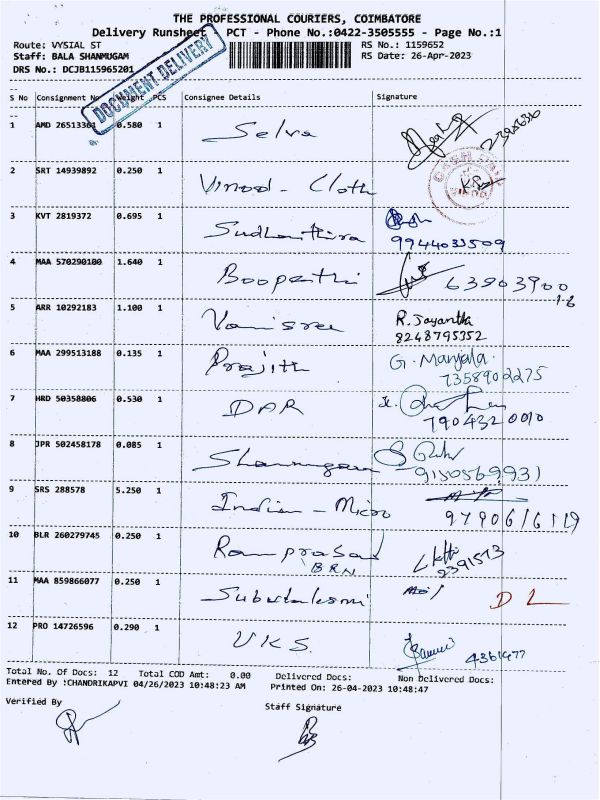 THE PROFESSIONAL COURIERS, COIMBATORE
Delivery Runsheet PCT - Phone No.:0422-3505555 - Page No.:1
Route: VYSIAL ST RS No.: 1159652
Staff: BALA SHANMUGAM RS Date: 26-Apr-2023
DRS No.: DCJB115965201
DOCUMENT DELIVERY
S No Consignment No Weight PCS Consignee Details Signature
1 AMD 0.580 1 Selva
2 SRT 14939892 0.250 1 Vinood - Cloth
3 KVT 2819372 0.695 1 Sudhanthira
9944033509
4 MAA 570290100 1.640 1 Boopathi 63903900
5 ARR 10292183 1.100 1 Vanisree R. Jayanthi
8248795352
6 MAA 299513188 0.135 1 Prajith G. Manjala.
7358902275
7 HRD 50358806 0.530 1 DAR
7904320010
8 JPR 502458178 0.085 1 Shanmugam
9150569931
9 SRS 288578 5.250 1 Indian - Micro
97906/6119
10 BLR 260279745 0.250 1 Ramprasad
BRN 2391573
11 MAA 859866077 0.250 1 Subulaksmi D L
12 PRO 14726596 0.290 1 UKS.
4361977
Total No. Of Docs: 12 Total COD Amt: 0.00 Delivered Docs: Non Delivered Docs:
Entered By :CHANDRIKAPVI 04/26/2023 10:48:23 AM Printed On: 26-04-2023 10:48:47
Verified By Staff Signature